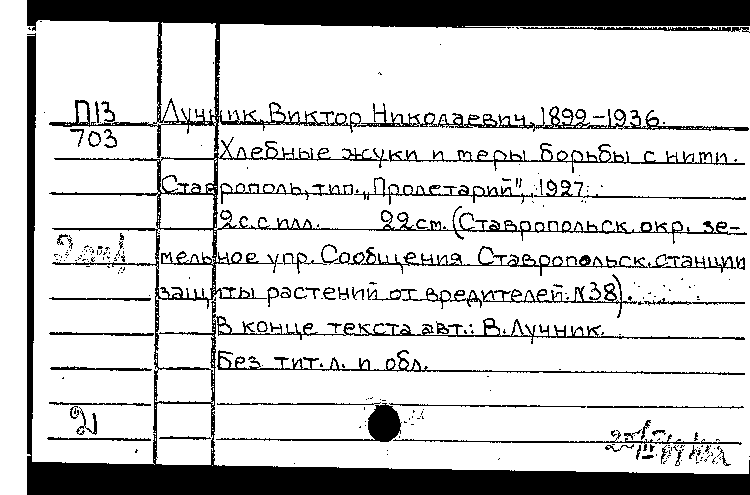 П13
703
Лучник, Виктор Николаевич, 1899-1936.
Хлебные жуки и меры борьбы с ними.
Ставрополь, тип. „Пролетарий", 1927.
2с. с илл. 22см. (Ставропольск. окр. зе-
мельное упр. Сообщения Ставропольск. станции
защиты растений от вредителей. N38).
В конце текста авт.: В. Лучник.
Без тит. л. и обл.